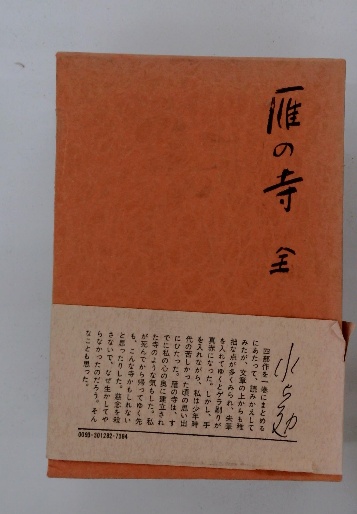 雁の寺 全
水上勉
四部作を一巻にまとめる
にあたって、読みかえして
みたが、文章の上からも稚
拙な点が多くみられ、朱筆
を入れてゆくとゲラ刷りが
真赤になった。しかし、手
を入れながら、私は少年時
代の苦しかった頃の思い出
にひたった。雁の寺は、す
でに私の心の奥に建立され
た寺のような気もした。私
が死んでから帰ってゆく先
も、こんな寺かもしれない
と思ったりした。慈念を殺
さないで、なぜ生かしてや
らなかったのだろう。そん
なことも思った。
0093-301282-7384